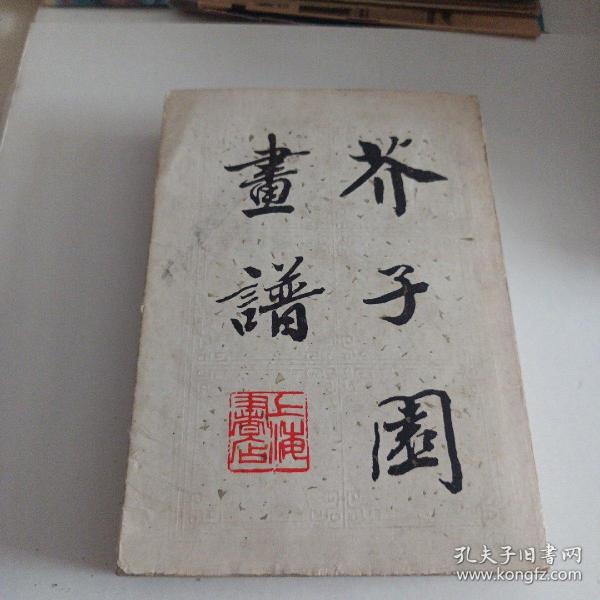 芥子园
畫譜
上海書店
孔夫子旧书网
www.kongfz.com